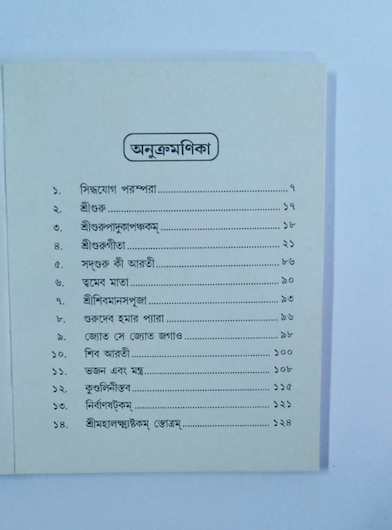 অনুক্রমণিকা
১. সিদ্ধযোগ পরম্পরা ৭
২. শ্রীগুরু ১৭
৩. শ্রীগুরুপাদুকাপঞ্চকম্ ১৮
৪. শ্রীগুরুগীতা ২১
৫. সদ্‌গুরু কী আরতী ৮৬
৬. ত্বমেব মাতা ৯০
৭. শ্রীশিবমানসপূজা ৯৩
৮. গুরুদেব হমার প্যারা ৯৬
৯. জ্যোত সে জ্যোত জগাও ৯৮
১০. শিব আরতী ১০০
১১. ভজন এবং মন্ত্র ১০৮
১২. কুণ্ডলিনীস্তব ১১৫
১৩. নির্বাণষট্‌কম্ ১২১
১৪. শ্রীমহালক্ষ্ম্যষ্টকম্ স্তোত্রম্ ১২৪